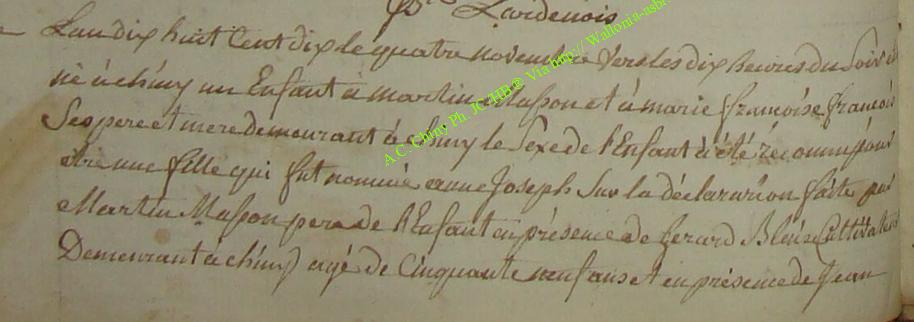 Lardenois
L'an dix huit Cent dix le quatre novembre vers les dix heures du Soir est
né à chiny un Enfant à martin Masson et à marie françoise françois
Ses pere et mere demeurant à Chiny le Sexe de l'Enfant à été réconnu pour
être une fille qui fut nommée anne Joseph Sur la déclaration faite par
Martin Masson pere de l'Enfant en présence de Gerard Cultivateur
Demeurant à chiny agé de Cinquante neuf ans et en présence de Jean
A C Chiny Ph. JC HB® Via http:// Wallonia-asbl